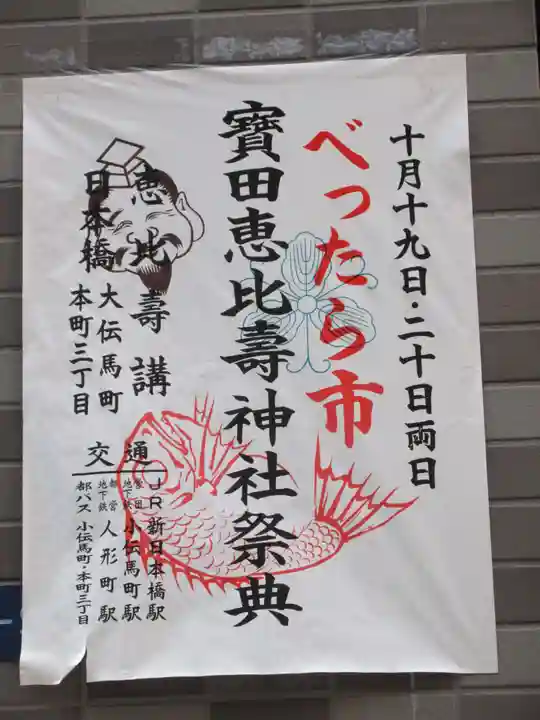 十月十九日・二十日両日
べったら市
寳田恵比壽神社祭典
恵比壽講
日本橋 大伝馬町
本町三丁目
交通
JR新日本橋駅
営団地下鉄 小伝馬町駅
都営地下鉄 人形町駅
都バス 小伝馬町・本町三丁目